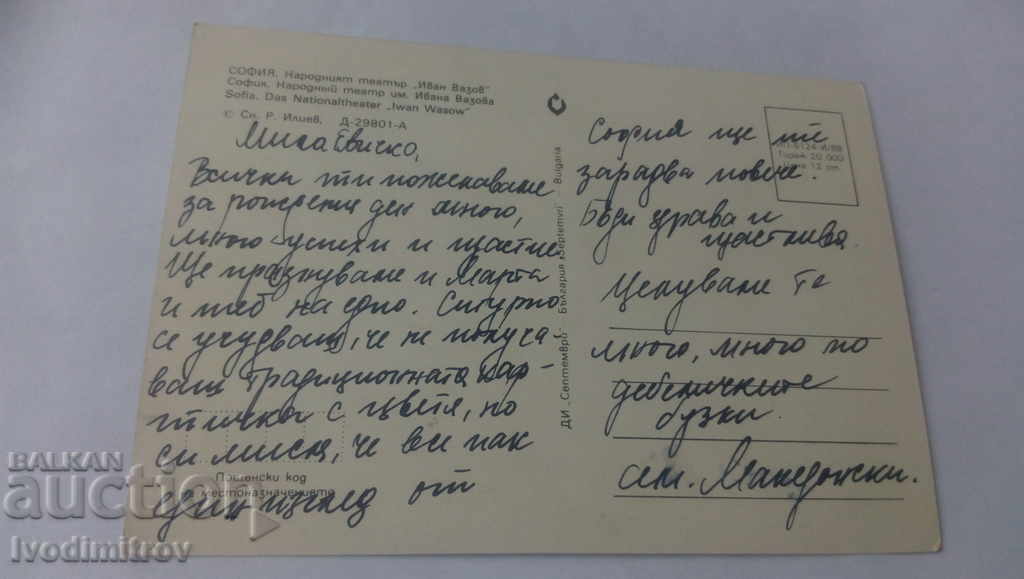 СОФИЯ. Народният театър „Иван Вазов"
София. Народный театр им. Ивана Вазова
Sofia. Das Nationaltheater „Iwan Wasow"
© Сн. Р. Илиев, Д-29801-А
Мила Евичко,
Всички ти пожелаваме
за рождения ден много,
много успехи и щастие.
Ще празнуваме и Марта
и теб на едно. Сигурно
се учудваш, че не получа-
ваш традиционната кар-
тичка с цветя, но
си мисля, че все пак
един изглед от
Пощенски код
местоназначението
ДИ „Септември" България «Septemvri» Bulgaria
Тираж 20 000
Цена 12 ст.
София ще те
зарадва повече.
Бъди здрава и
щастлива.
Целуваме те
много, много по
дебеличките
бузки.
сем. Македонски.
BALKAN
auction
Ivodimitrov